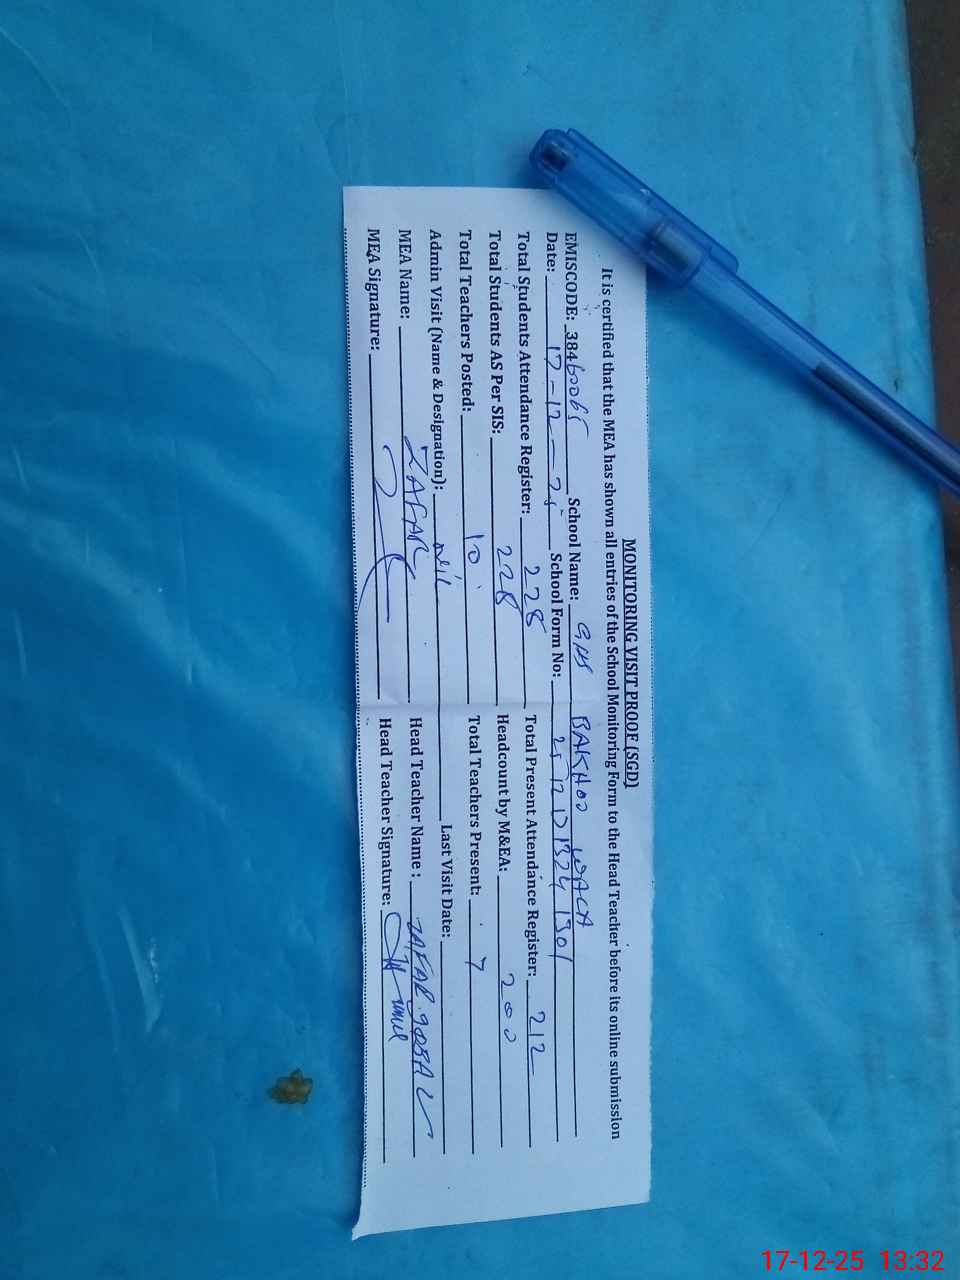 MONITORING VISIT PROOF (SGD)
It is certified that the MEA has shown all entries of the School Monitoring Form to the Head Teacher before its online submission
EMISCODE: 38460065 School Name: GHS BAKHOO WALA
Date: 17-12-25 School Form No: 25121713241301
Total Students Attendance Register: 228 Total Present Attendance Register: 212
Total Students AS Per SIS: 228 Headcount by M&EA: 200
Total Teachers Posted: 10 Total Teachers Present: 7
Admin Visit (Name & Designation): Nil Last Visit Date:
MEA Name: ZAFAR Head Teacher Name: ZAFAR
MEA Signature: Head Teacher Signature:
17-12-25 13:32